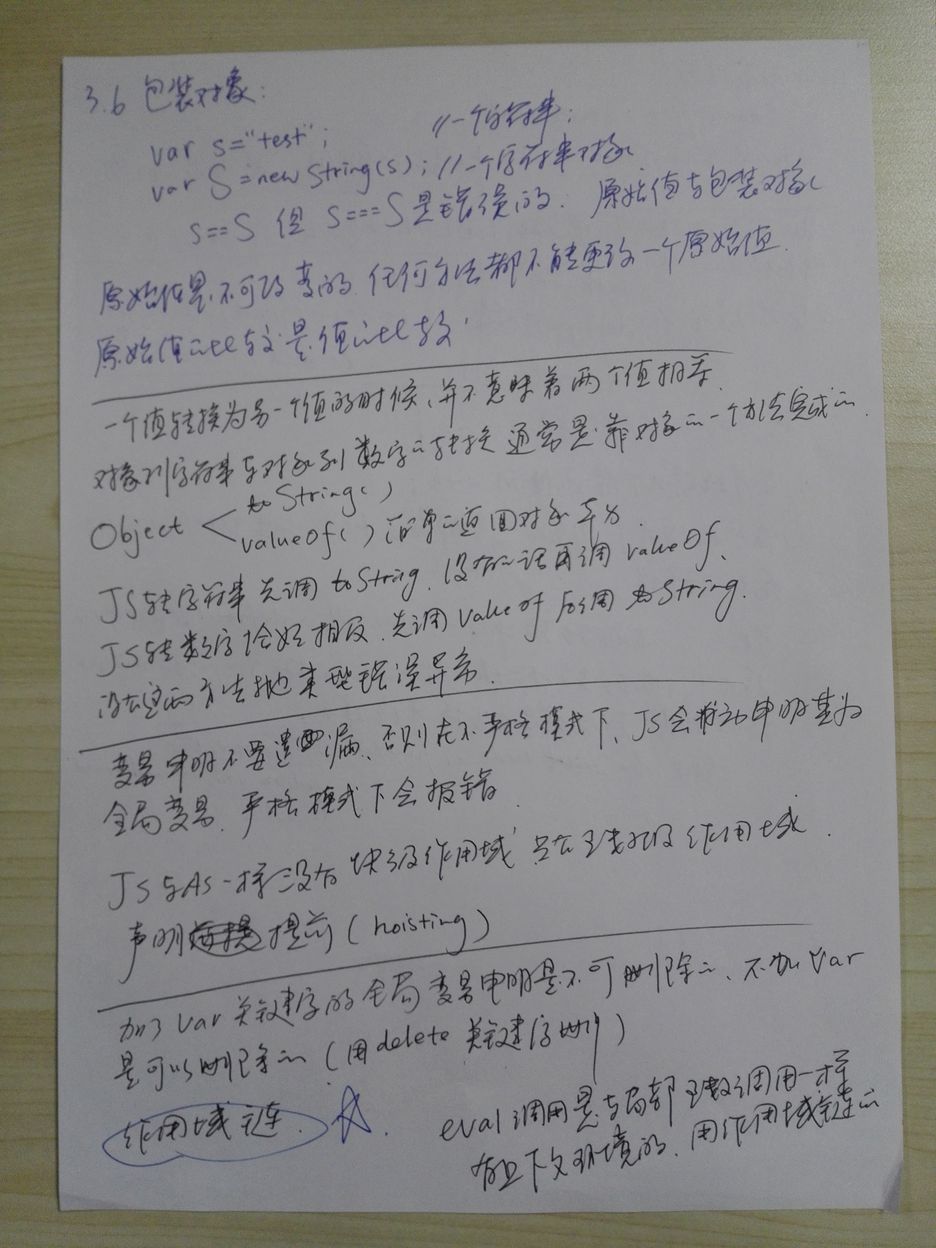 3.6 包装对象:
var s="test"; //一个字符串;
var S=new String(s); //一个字符串对象
s==S 但 s===S是错误的. 原始值与包装对象
原始值是不可改变的 任何方法都不能更改一个原始值.
原始值的比较是值的比较
一个值转换为另一个值的时候、并不意味着两个值相等.
对象到字符串与对象到数字的转换 通常是靠对象的一个方法完成的.
Object toString()
valueOf() 简单的返回对象本身.
JS转字符串先调 toString, 没有的话再调 valueOf、
JS转数字恰好相反、先调 value of 后调 toString.
没有这两方法抛类型错误异常.
变量申明不要遗漏、否则在不严格模式下、JS会帮动申明其为
全局变量. 严格模式下会报错
JS与AS一样没有块级作用域 只有函数级作用域.
声明提前(hoisting)
加了var关键字的全局变量申明是不可删除的、不加var
是可以删除的(用delete 关键字删)
作用域链. ☆. eval调用是与局部函数调用一样
有上下文环境的、用作用域链的